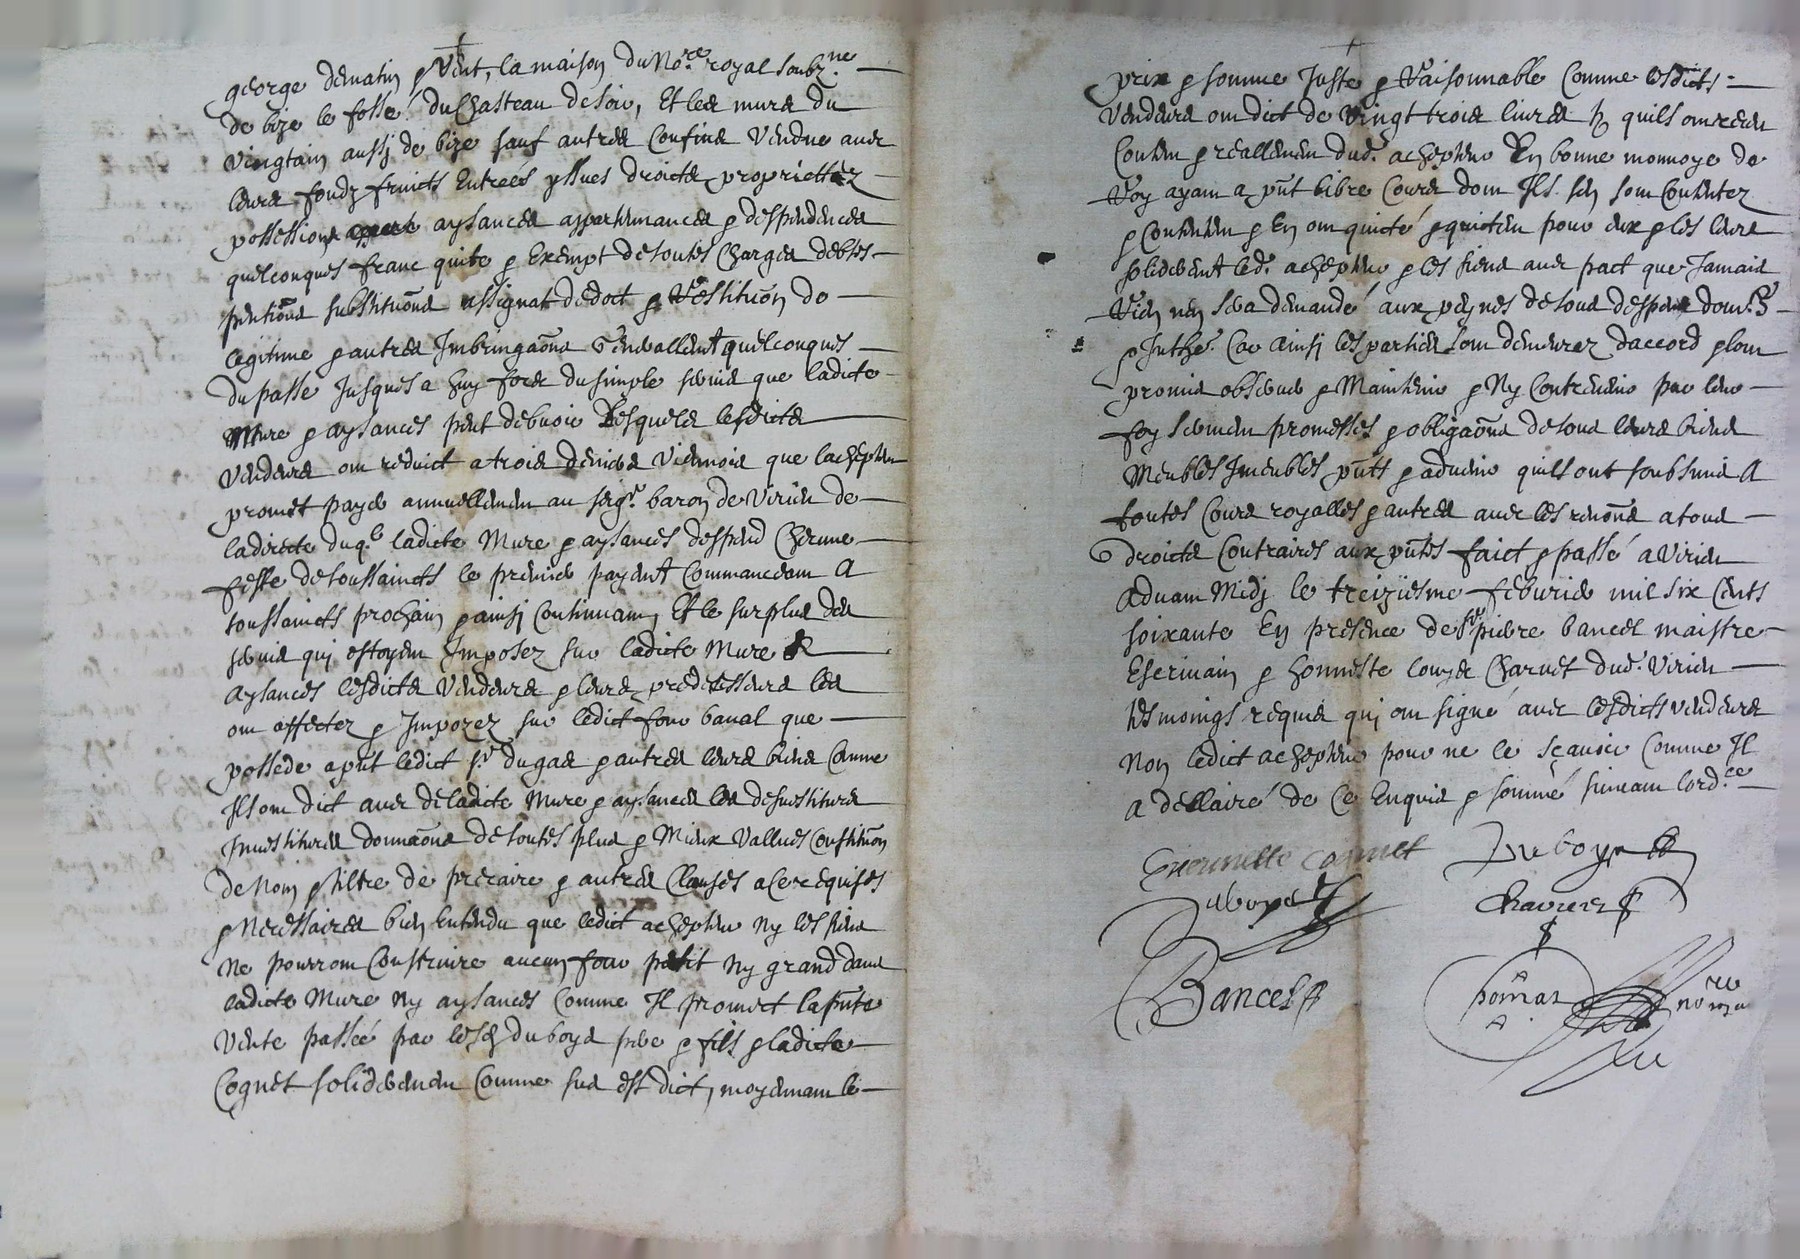 george de matin & vent, la maison du No.re royal soubz.ne
de bize le fossé du Chasteau de soir, Et les murs du
vingtain aussy de bize sauf autres Confins vendue avec
leurs fondz fruicts Entrees yssues droicts proprietez
possessions aysances appartenances & despendences
quelconques franc quitte & Exempt de toutes Charges debtes
pentions substitutions assignat de dot & restitution de
legitime & autres Imbringaons Generallemt quelconques
du passe Jusques a huy fors du simple servis que ladicte
Mure & aysances peut debvoir Lesquels lesdicts
vendeurs ont reduict a trois deniers viennois que lachepteur
promet payer annuellement au seigr. baron de Virieu de
la directe duql. ladicte Mure & aysances despend Chacune
feste de toussaincts le premier payemt Commanceant A
toussaincts prochain & ainsy Continuant, Et le surplus des
servis quj estoyent Imposez sur ladicte Mure &
Aysances lesdicts vendeurs & leurs predecesseurs les
ont affectez & Imposez sur ledict four banal que
possede a pnt ledict sr. dugas & autres leurs biens Comme
Ilz ont dict avec de ladicte Mure & aysances les desvestitures
Investitures donnaons de toutes plus & Mieux vallues Constitution
de Nom & tiltre de precaire & autres Clauses a Ce requises
& Necessaires bien Entendu que ledict achepteur ny les siens
ne pourront Construire aucun four petit ny grand dans
ladicte Mure ny aysances Comme Il promet la pnte
vente passée par lesd. duboys pere & fils & ladicte
Cognet sollidairement Comme sus est dict, moyennant le
prix & somme Juste & raisonnable Comme lesdicts
vendeurs ont dict de vingt trois livres tz quils ont receu
Content & reallement dud. achepteur En bonne monnoye de
Roy ayant a pnt libre Cours dont Ils sen sont Contentez
& Contentent & En ont quicté & quictent pour eux & les leurs
solidairemt led. achepteur & les siens avec pact que Jamais
Rien nen sera demandé aux peynes de tous despens dom.es
& Inthe. Car ainsj les parties sont demeurez daccord & lont
promis observer & Maintenir & Ny Contrevenir par leur
foy serment promesses & obligaons de tous leurs biens
Meubles Imeubles pnts & advenir quils ont soubsmis A
toutes Cours royalles & autres avec les renons a tous
droicts Contraires aux pntes faict & passé a Virieu
Advant Midj le treiziesme febvrier mil six Cents
soixante En presence de sr. pierre bancel maistre
Escrivain & honneste louys Charvet dud. Virieu
tesmoings requis quj ont signé avec lesdicts vendeurs
Non ledict achepteur pour ne le sçavoir Comme Il
A declairé de Ce Enquis & sommé suivant lord.ce
Cognet Duboys
Duboys Charvet
Bancel